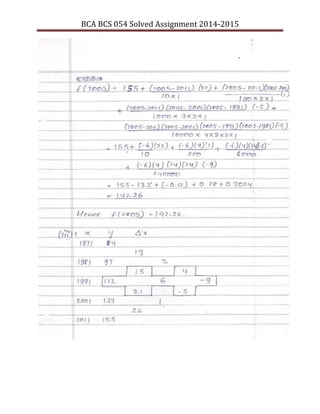 BCA BCS 054 Solved Assignment 2014-2015
f(2005) = 155 + (2005-2011) (22) + (2005-2011)(2005-2001)
10×1 100×2×1 (1)
+ (2005-2011) (2005-2001) (2005-1991) (-5) +
1000×3×2×1
(2005-2011)(2005-2001)(2005-1991)(2005-1981)(-9)
10000×4×3×2×1
= 155 + (-6)(22) + (-6)(4)(1) +
10 200 6000
+ (-6)(4) (14)(24) (-9)
240000
= 155 - 13.2 + (-0.12) + 0.28 + 0.3024
= 142.26
Hence f(2005) = 142.26
(iii) x y
1971 84
13
1981 97 2
15 4
1991 112 6 -9
21 -5
2001 133 1
22
2011 155